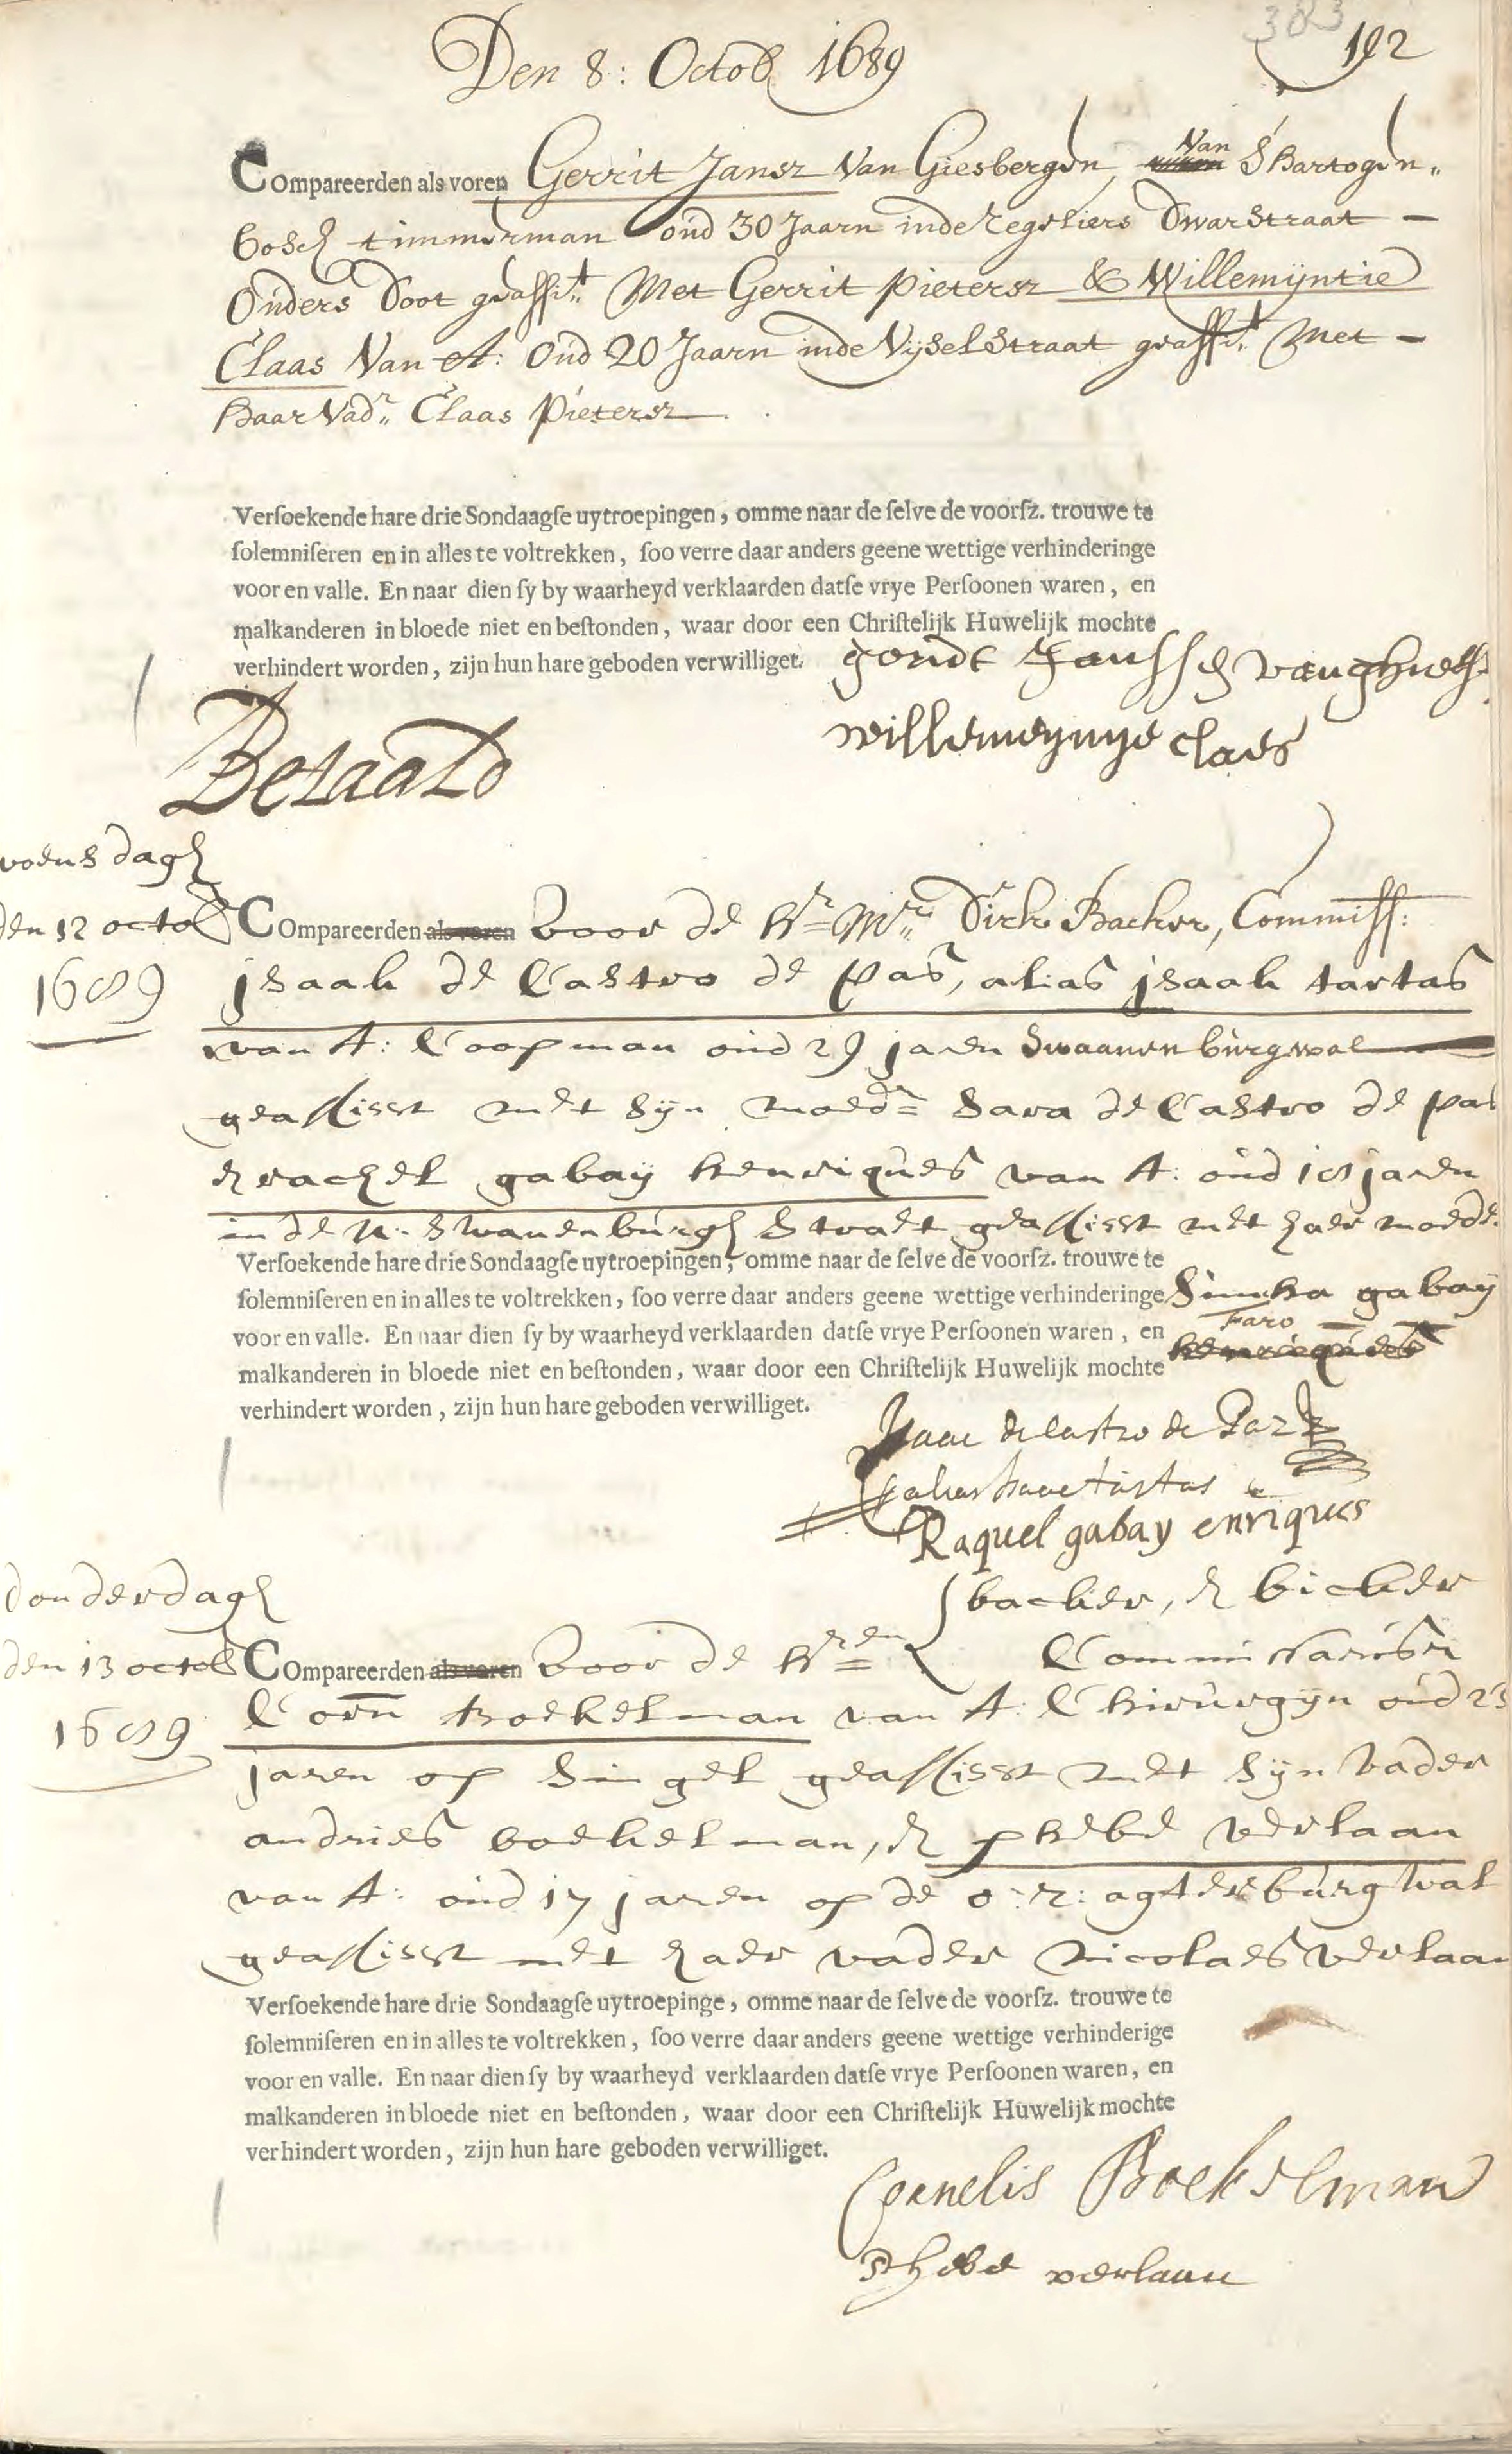 383
192
Den 8: Octob 1689
Compareerden als voren Gerrit Jansz Van Giesbergen, Van S Hartogen„
bosch timmerman oud 30 Jaarn inde Regeliers Dwarstraat —
Ouders Doot geasst„ Met Gerrit Pietersz & Willemijntie
Claas Van A: Oud 20 Jaarn inde Vijselstraat geasst„ Met —
Haar Vadr„ Claas Pietersz
Verſoekende hare drie Sondaagſe uytroepingen, omme naar de ſelve de voorſz. trouwe te
ſolemniſeren en in alles te voltrekken, ſoo verre daar anders geene wettige verhinderinge
voor en valle. En naar dien ſy by waarheyd verklaarden datſe vrye Perſoonen waren, en
malkanderen in bloede niet en beſtonden, waar door een Chriſtelijk Huwelijk mochte
verhindert worden, zijn hun hare geboden verwilliget.
willemeynye claes
Betaald
woensdagh
den 12 octob
1689
COmpareerden als voren voor de Hr Mr„ Dirk Backer, Commiss:
jsaak de Castro de pas, alias jsaak tartas
van A: Coopman oud 29 jaren Swaanenburgwal
geassisst met sijn moedr Sara de Castro de pas
en rachel gabaij henriques van A: oud 18 jaren
in de N: Swanenburgh Straet geassisst met haer moeder
Verſoekende hare drie Sondaagſe uytroepingen, omme naar de ſelve de voorſz. trouwe te
ſolemniſeren en in alles te voltrekken, ſoo verre daar anders geene wettige verhinderinge Simha gabaij
voor en valle. En naar dien ſy by waarheyd verklaarden datſe vrye Perſoonen waren, en Faro
malkanderen in bloede niet en beſtonden, waar door een Chriſtelijk Huwelijk mochte henriques
verhindert worden, zijn hun hare geboden verwilliget.
Isaac de Castro de Paz
alias Isaac tartas
Raquel gabay enriques
donderdagh
den 13 octob
1689
COmpareerden als voren voor de Hren backer, en bicker
Commissarisen
Corn Boekelman van A: Chirurgijn oud 23
jaren op Singel geassisst met sijn vader
andries boekelman, en phebe verlaan
van A: oud 17 jaren op de o: z: agterburgwal
geassisst met haer vader Nicolaes verlaan
Verſoekende hare drie Sondaagſe uytroepinge, omme naar de ſelve de voorſz. trouwe te
ſolemniſeren en in alles te voltrekken, ſoo verre daar anders geene wettige verhinderige
voor en valle. En naar dien ſy by waarheyd verklaarden datſe vrye Perſoonen waren, en
malkanderen in bloede niet en beſtonden, waar door een Chriſtelijk Huwelijk mochte
verhindert worden, zijn hun hare geboden verwilliget.
Cornelis Boekelman
Phebe verlaan